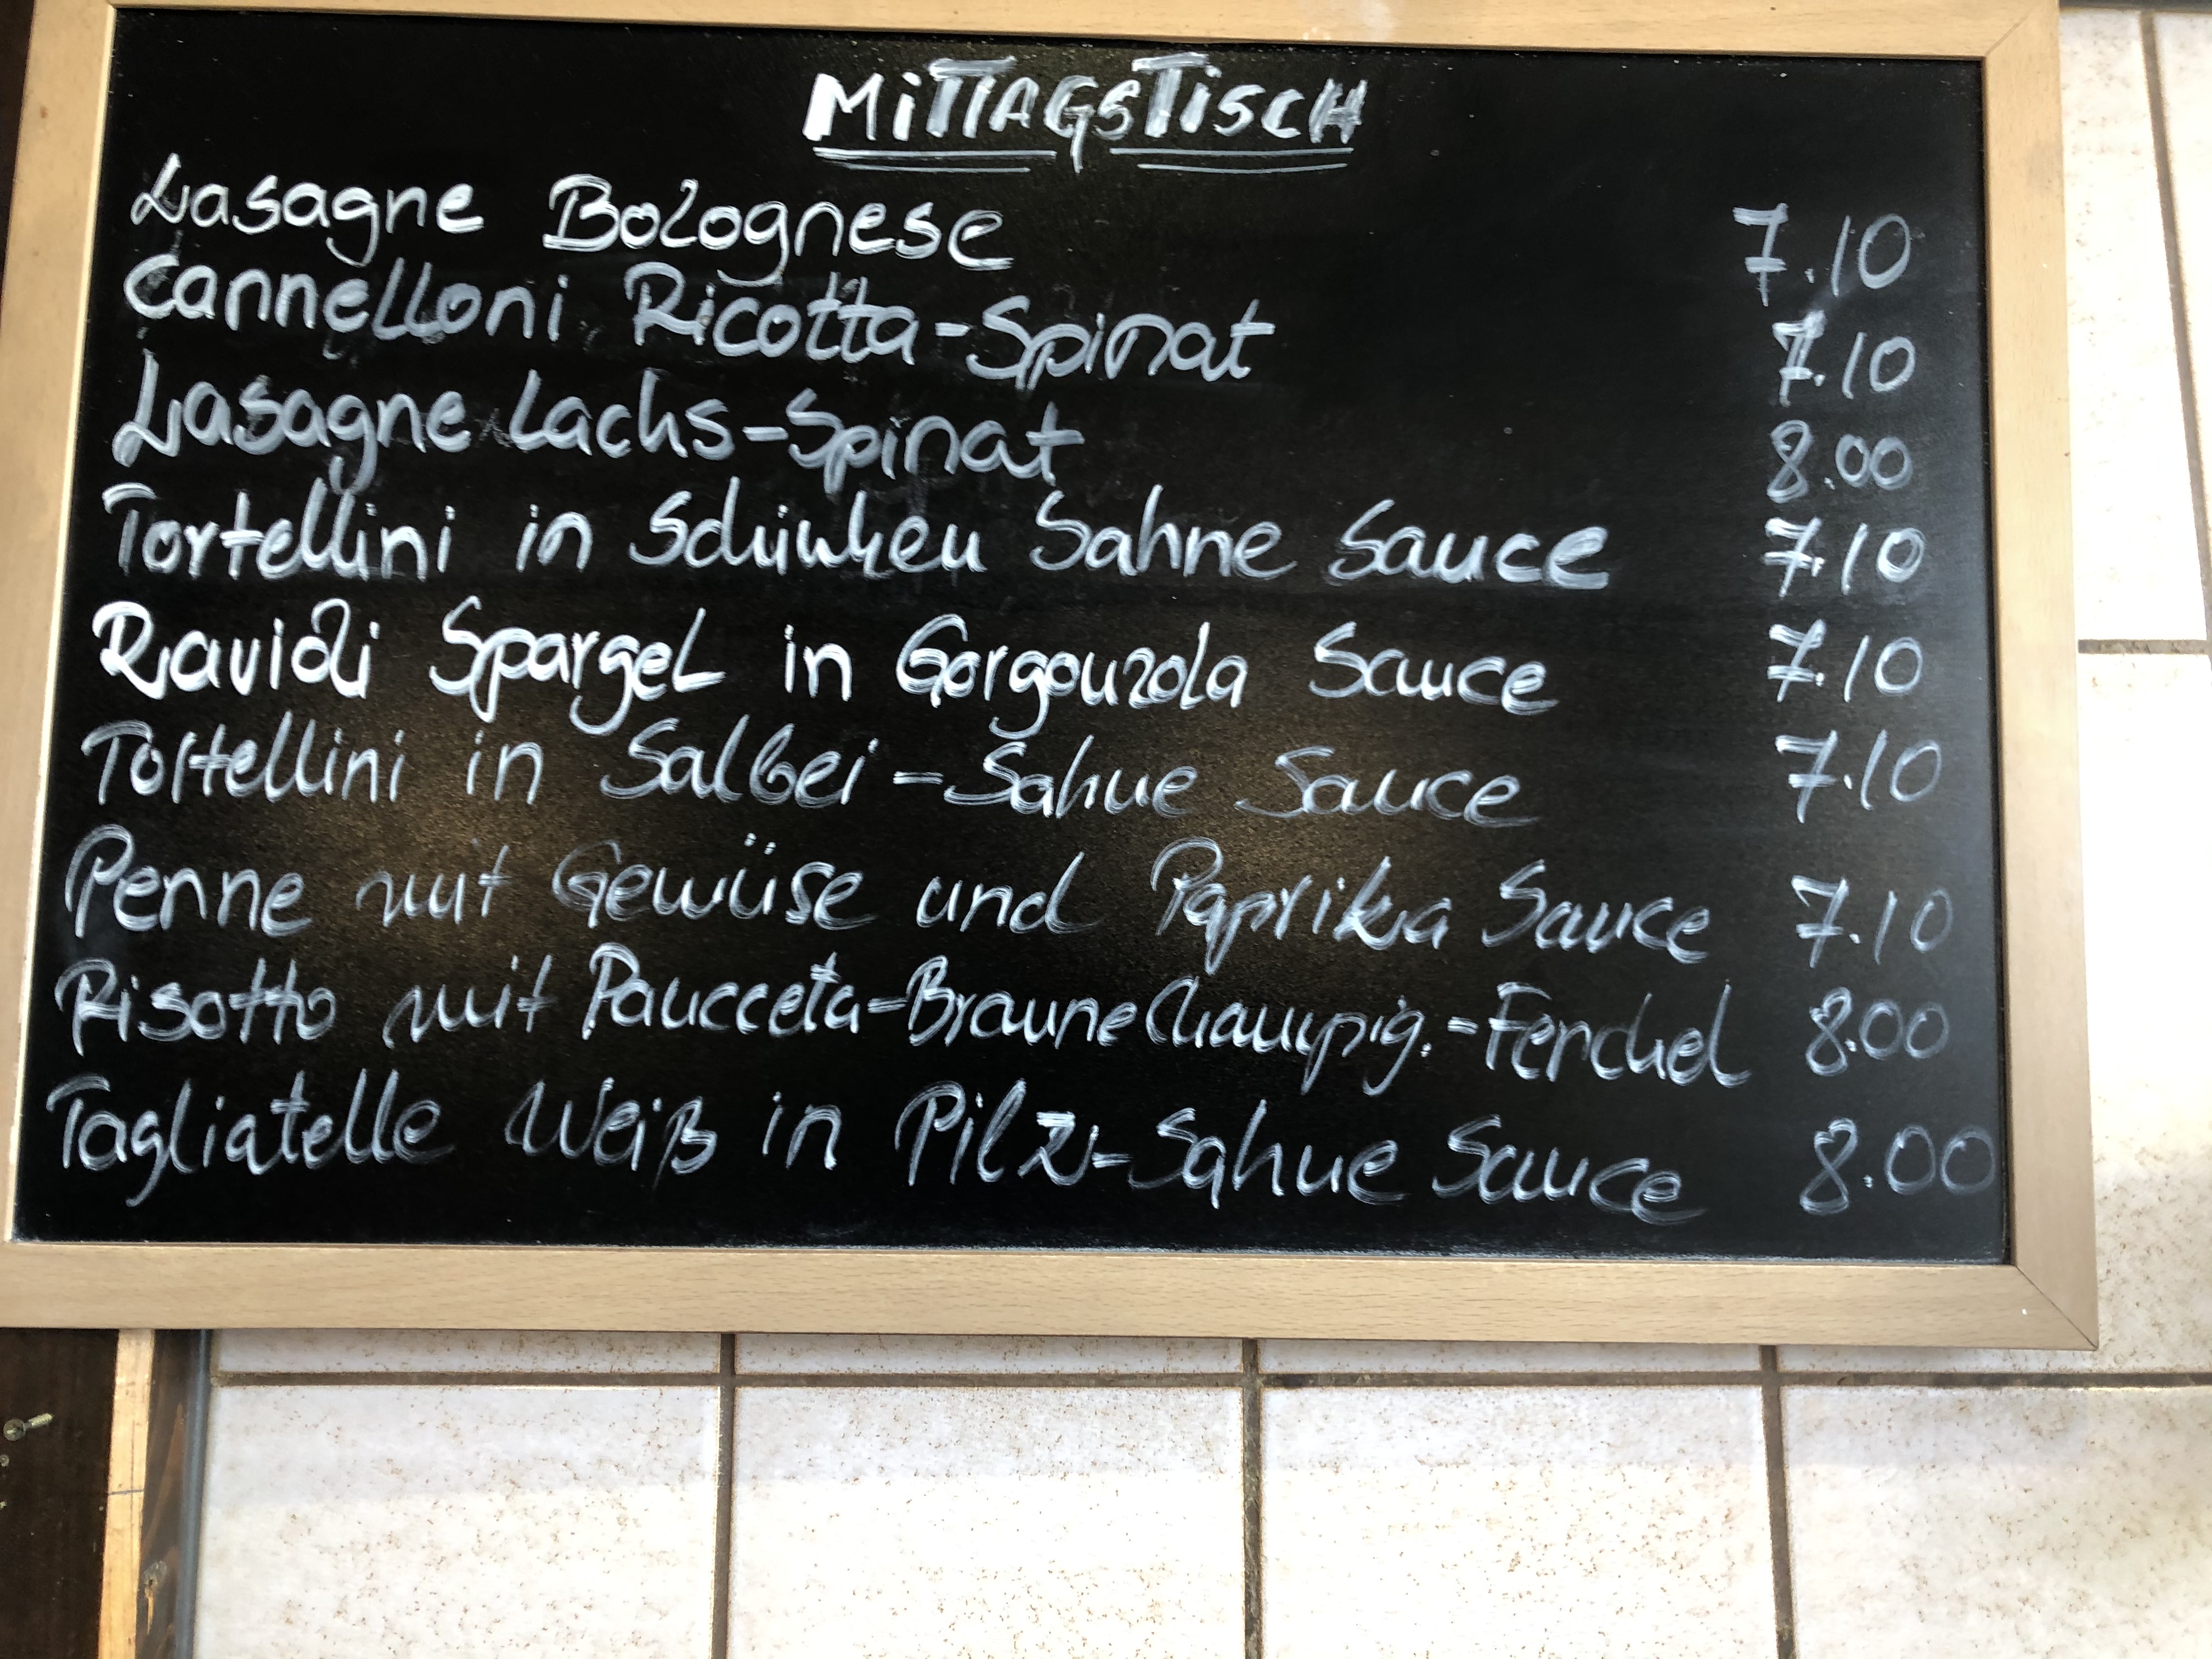 MiTTAGSTiSCH
Lasagne Bolognese 7.10
Cannelloni Ricotta-Spinat 7.10
Lasagne Lachs-Spinat 8.00
Tortellini in Schinken Sahne Sauce 7.10
Ravioli Spargel in Gorgonzola Sauce 7.10
Tortellini in Salbei-Sahne Sauce 7.10
Penne mit Gewüse und Paprika Sauce 7.10
Risotto mit Pancceta-Braune Champig.-Fenchel 8.00
Tagliatelle Weiß in Pilz-Sahne Sauce 8.00